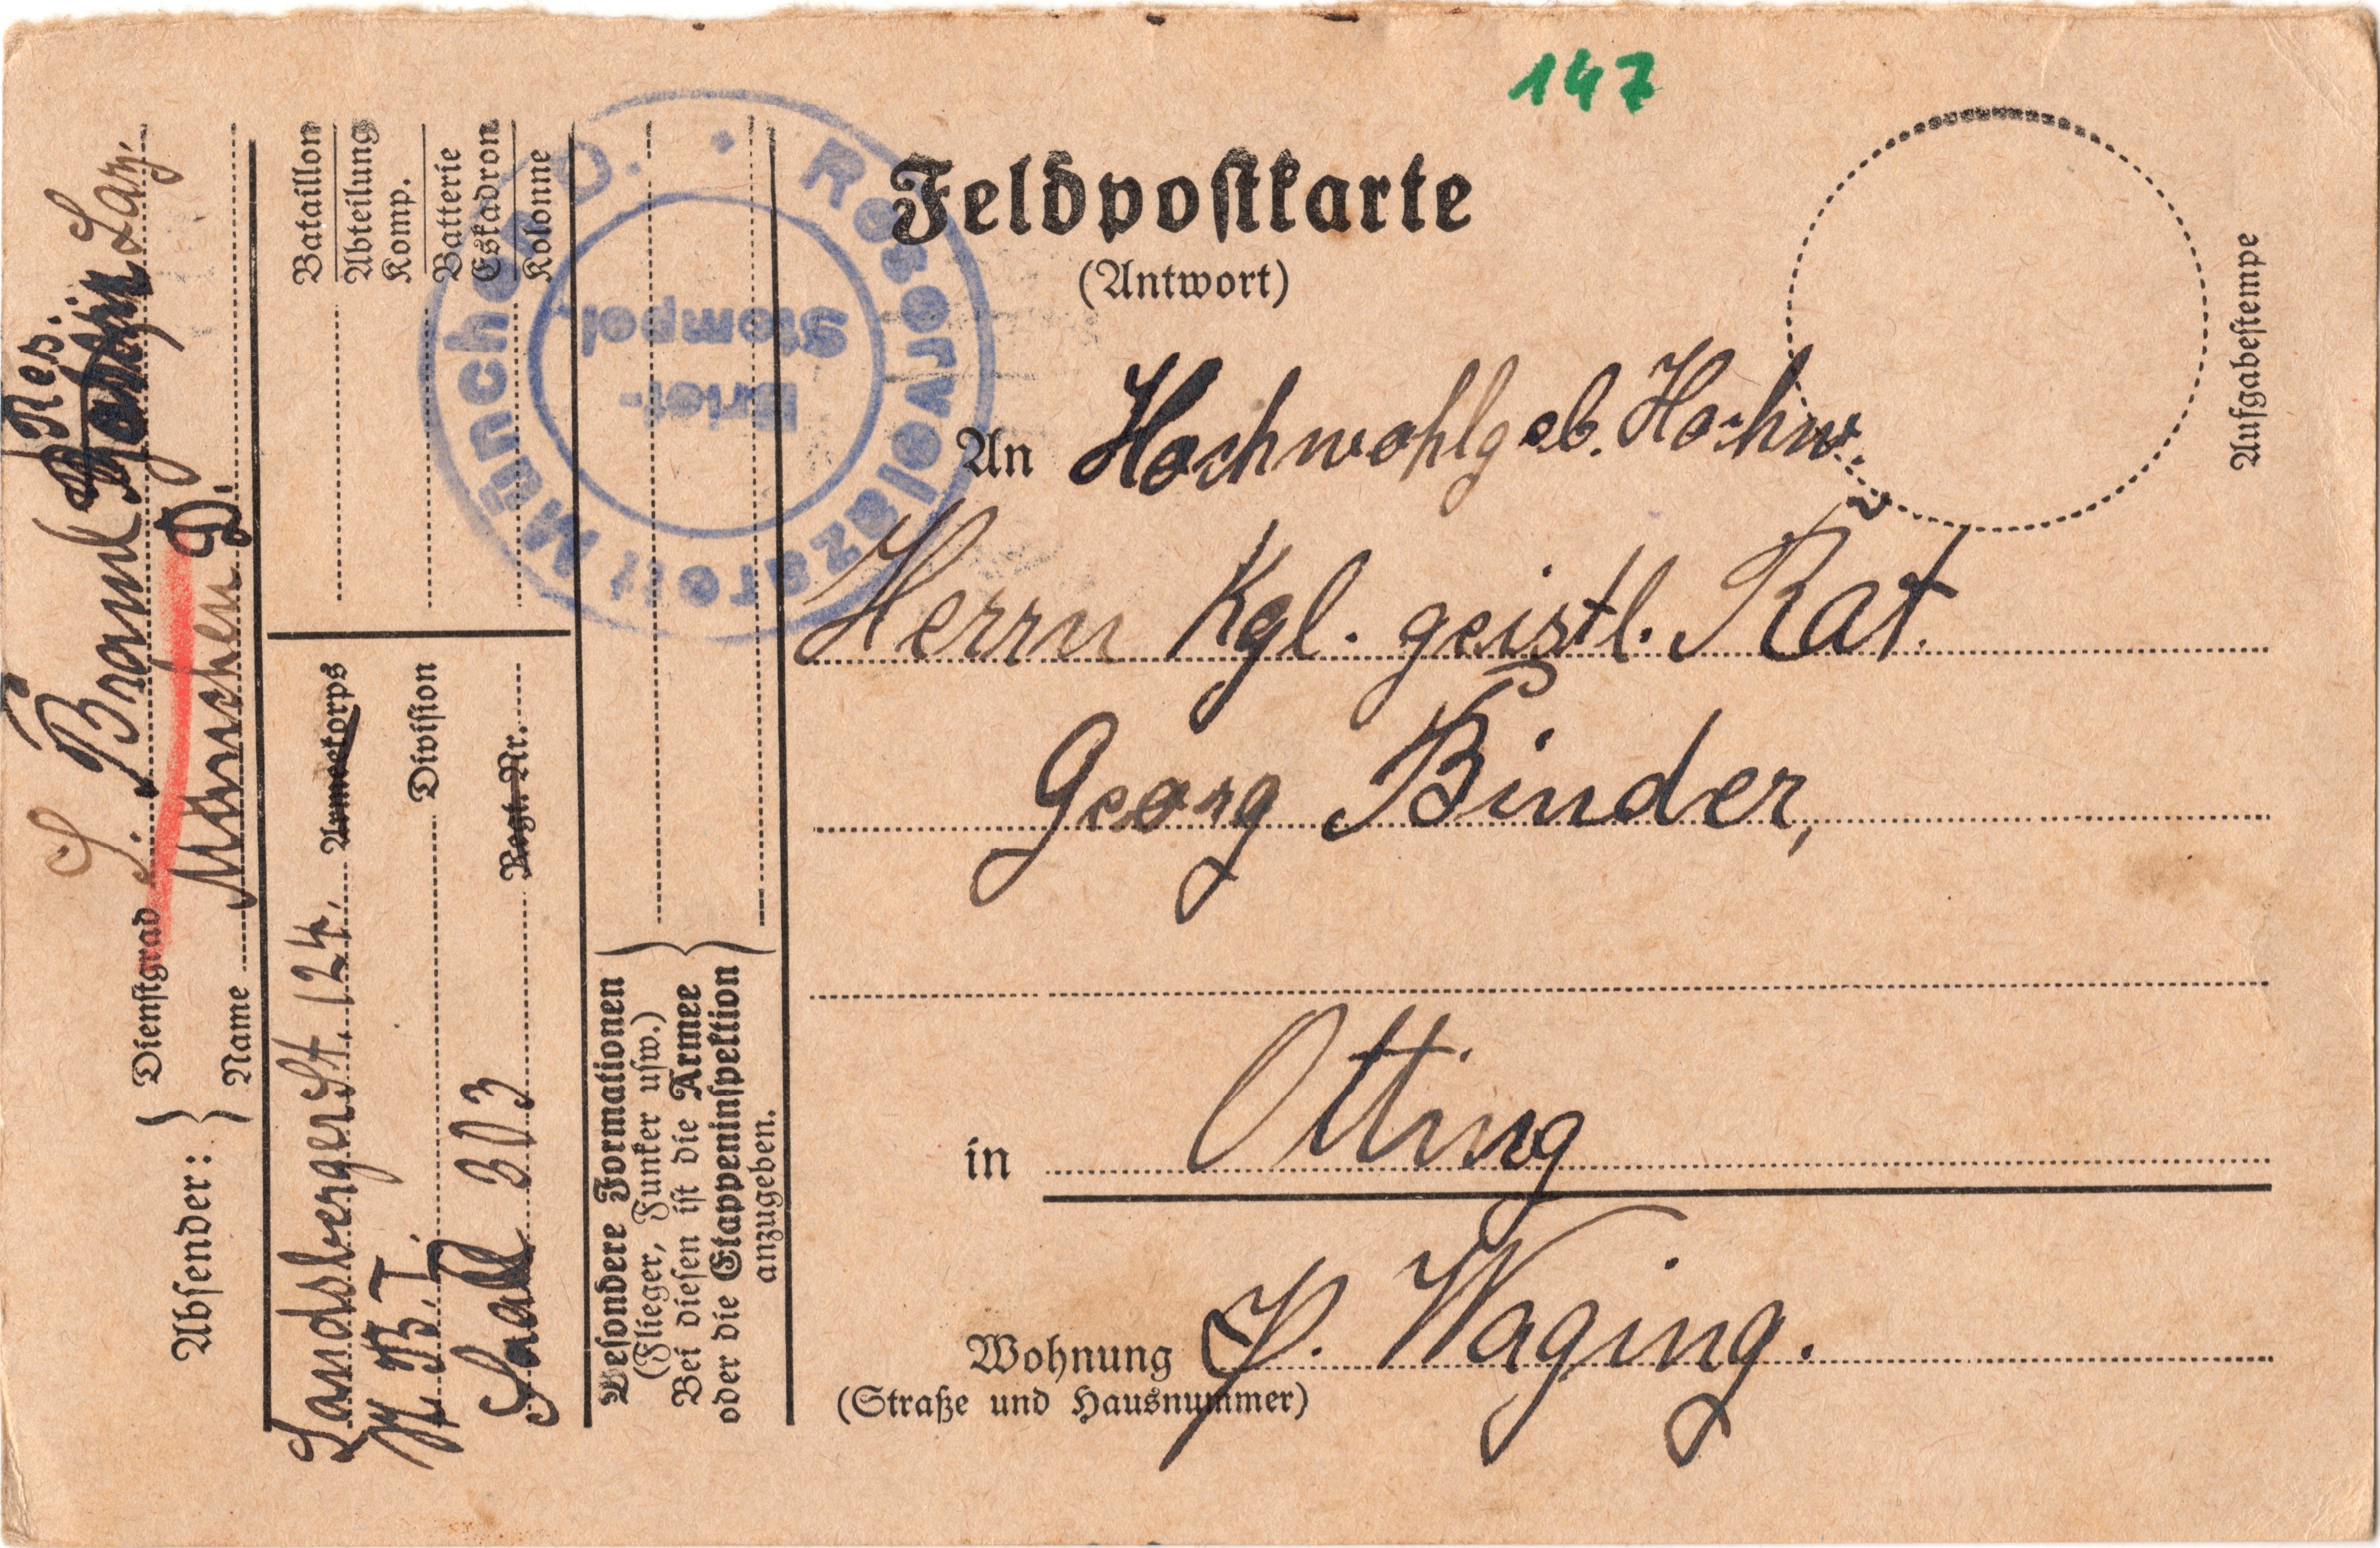 147
Feldpostkarte
(Antwort)
Aufgabestempe
An Hochwohlgeb. Hochw.
Herrn Kgl. geistl. Rat.
Georg Binder,
in Otting
Wohnung P. Waging.
(Straße und Hausnummer)
Absender:
Dienstgrad S. Braml Res. Laz.
Name München D.
Landsbergerst. 124. Armeekorps
M. B. I. Division
Saal 303 Regt. Nr.
Bataillon
Abteilung
Komp.
Batterie
Eskadron
Kolonne
Besondere Formationen
(Flieger, Funker usw.)
Bei diesen ist die Armee
oder die Etappeninspektion
anzugeben.
Reservelazarett München D.
Brief-
Stempel